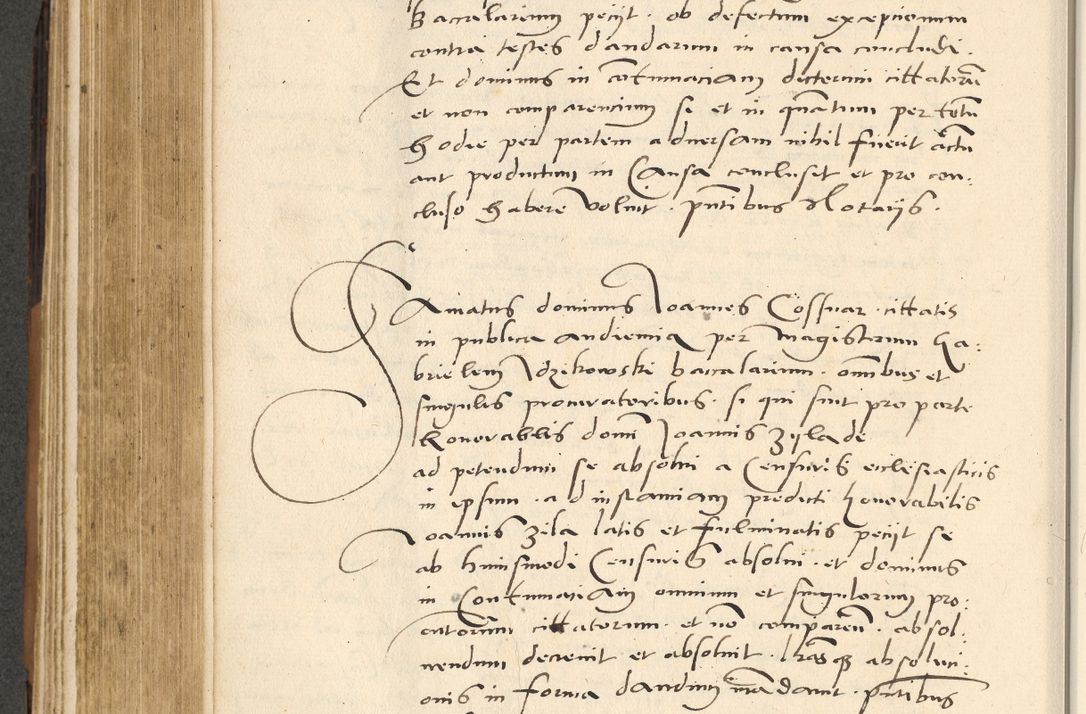 Baccalarium peciit · ob defectum excepcionum
contra testes dandarum in causa concludi ·
Et dominus in cõtumaciam dictorum cittatorũ
et non comparencium se et in quãtum per totũ
hodie per partem adversam nihil fuerit actũ
aut productum in Causa conclusit et pro con:
cluso habere voluit · pñtibus Notariis ·
Famatus dominus Joannes Cossnar · cittatis
in publica audiencia per magistrum Ga:
brielem Idzikowski baccalarium · omĩbus et
singulis procuratoribus · si qui sint pro parte
honorabilis domĩ Joannis Zyla de
ad petendum se absolvi a Censuris ecclesiasticis
in ipsum · ad instanciam predicti honorabilis
Joannis Zila latis et fulminatis peciit se
ab huiusmodi Censuris absolvi · et dominus
in Contumaciam omnium et singulorum pro:
catorum cittatorum · et nõ comparẽn · absol:
vendum decrevit et absolvit · lrãsq3 absoluci:
onis in forma dandum mãdavit · pñtibus